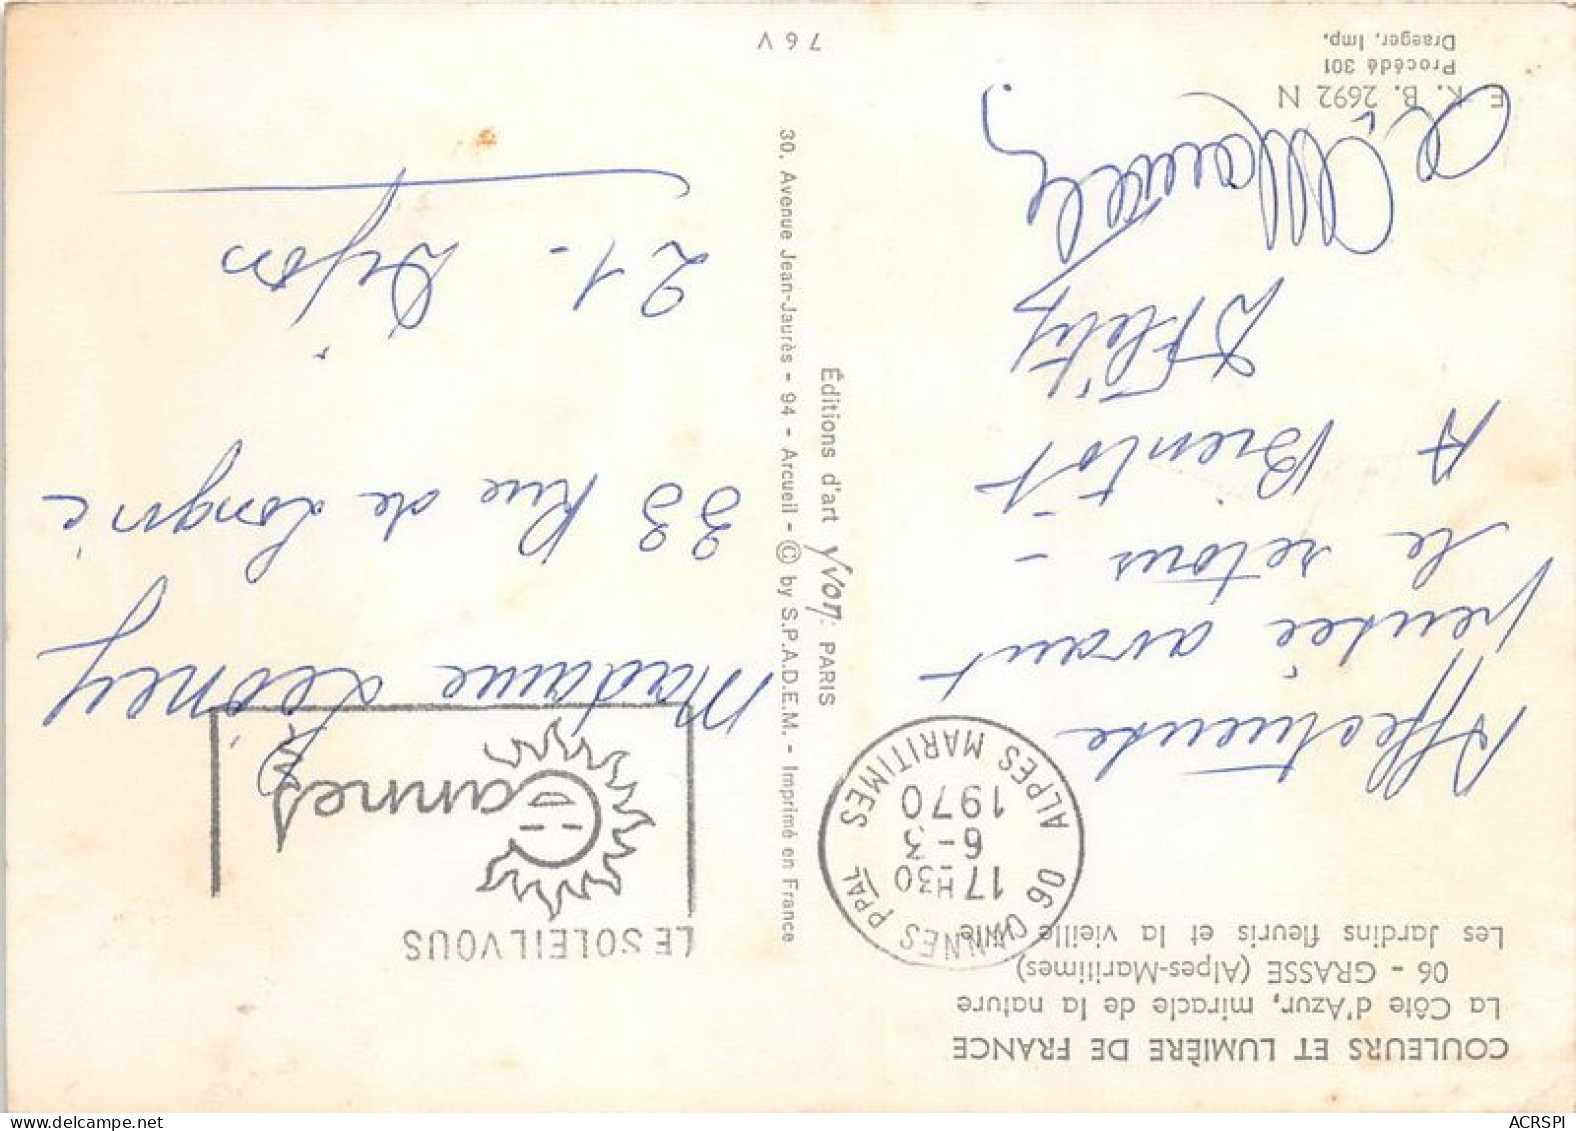 COULEURS ET LUMIÈRE DE FRANCE
La Côte d'Azur, miracle de la nature
06 - GRASSE (Alpes-Maritimes)
Les Jardins fleuris et la vieille ville
06 CANNES PPAL
17H30
6-3
1970
ALPES MARITIMES
LE SOLEIL VOUS
Cannes
Affectueuse
pensée avant
le retour -
A Bientôt
Madame
33 Rue de Longvic
21 - Dijon
Éditions d'art Yvon. PARIS
30, Avenue Jean-Jaurès - 94 - Arcueil - © by S.P.A.D.E.M. - Imprimé en France
E. K. B. 2692 N
Procédé 301
Draeger, Imp.
76 V
ACRSPI